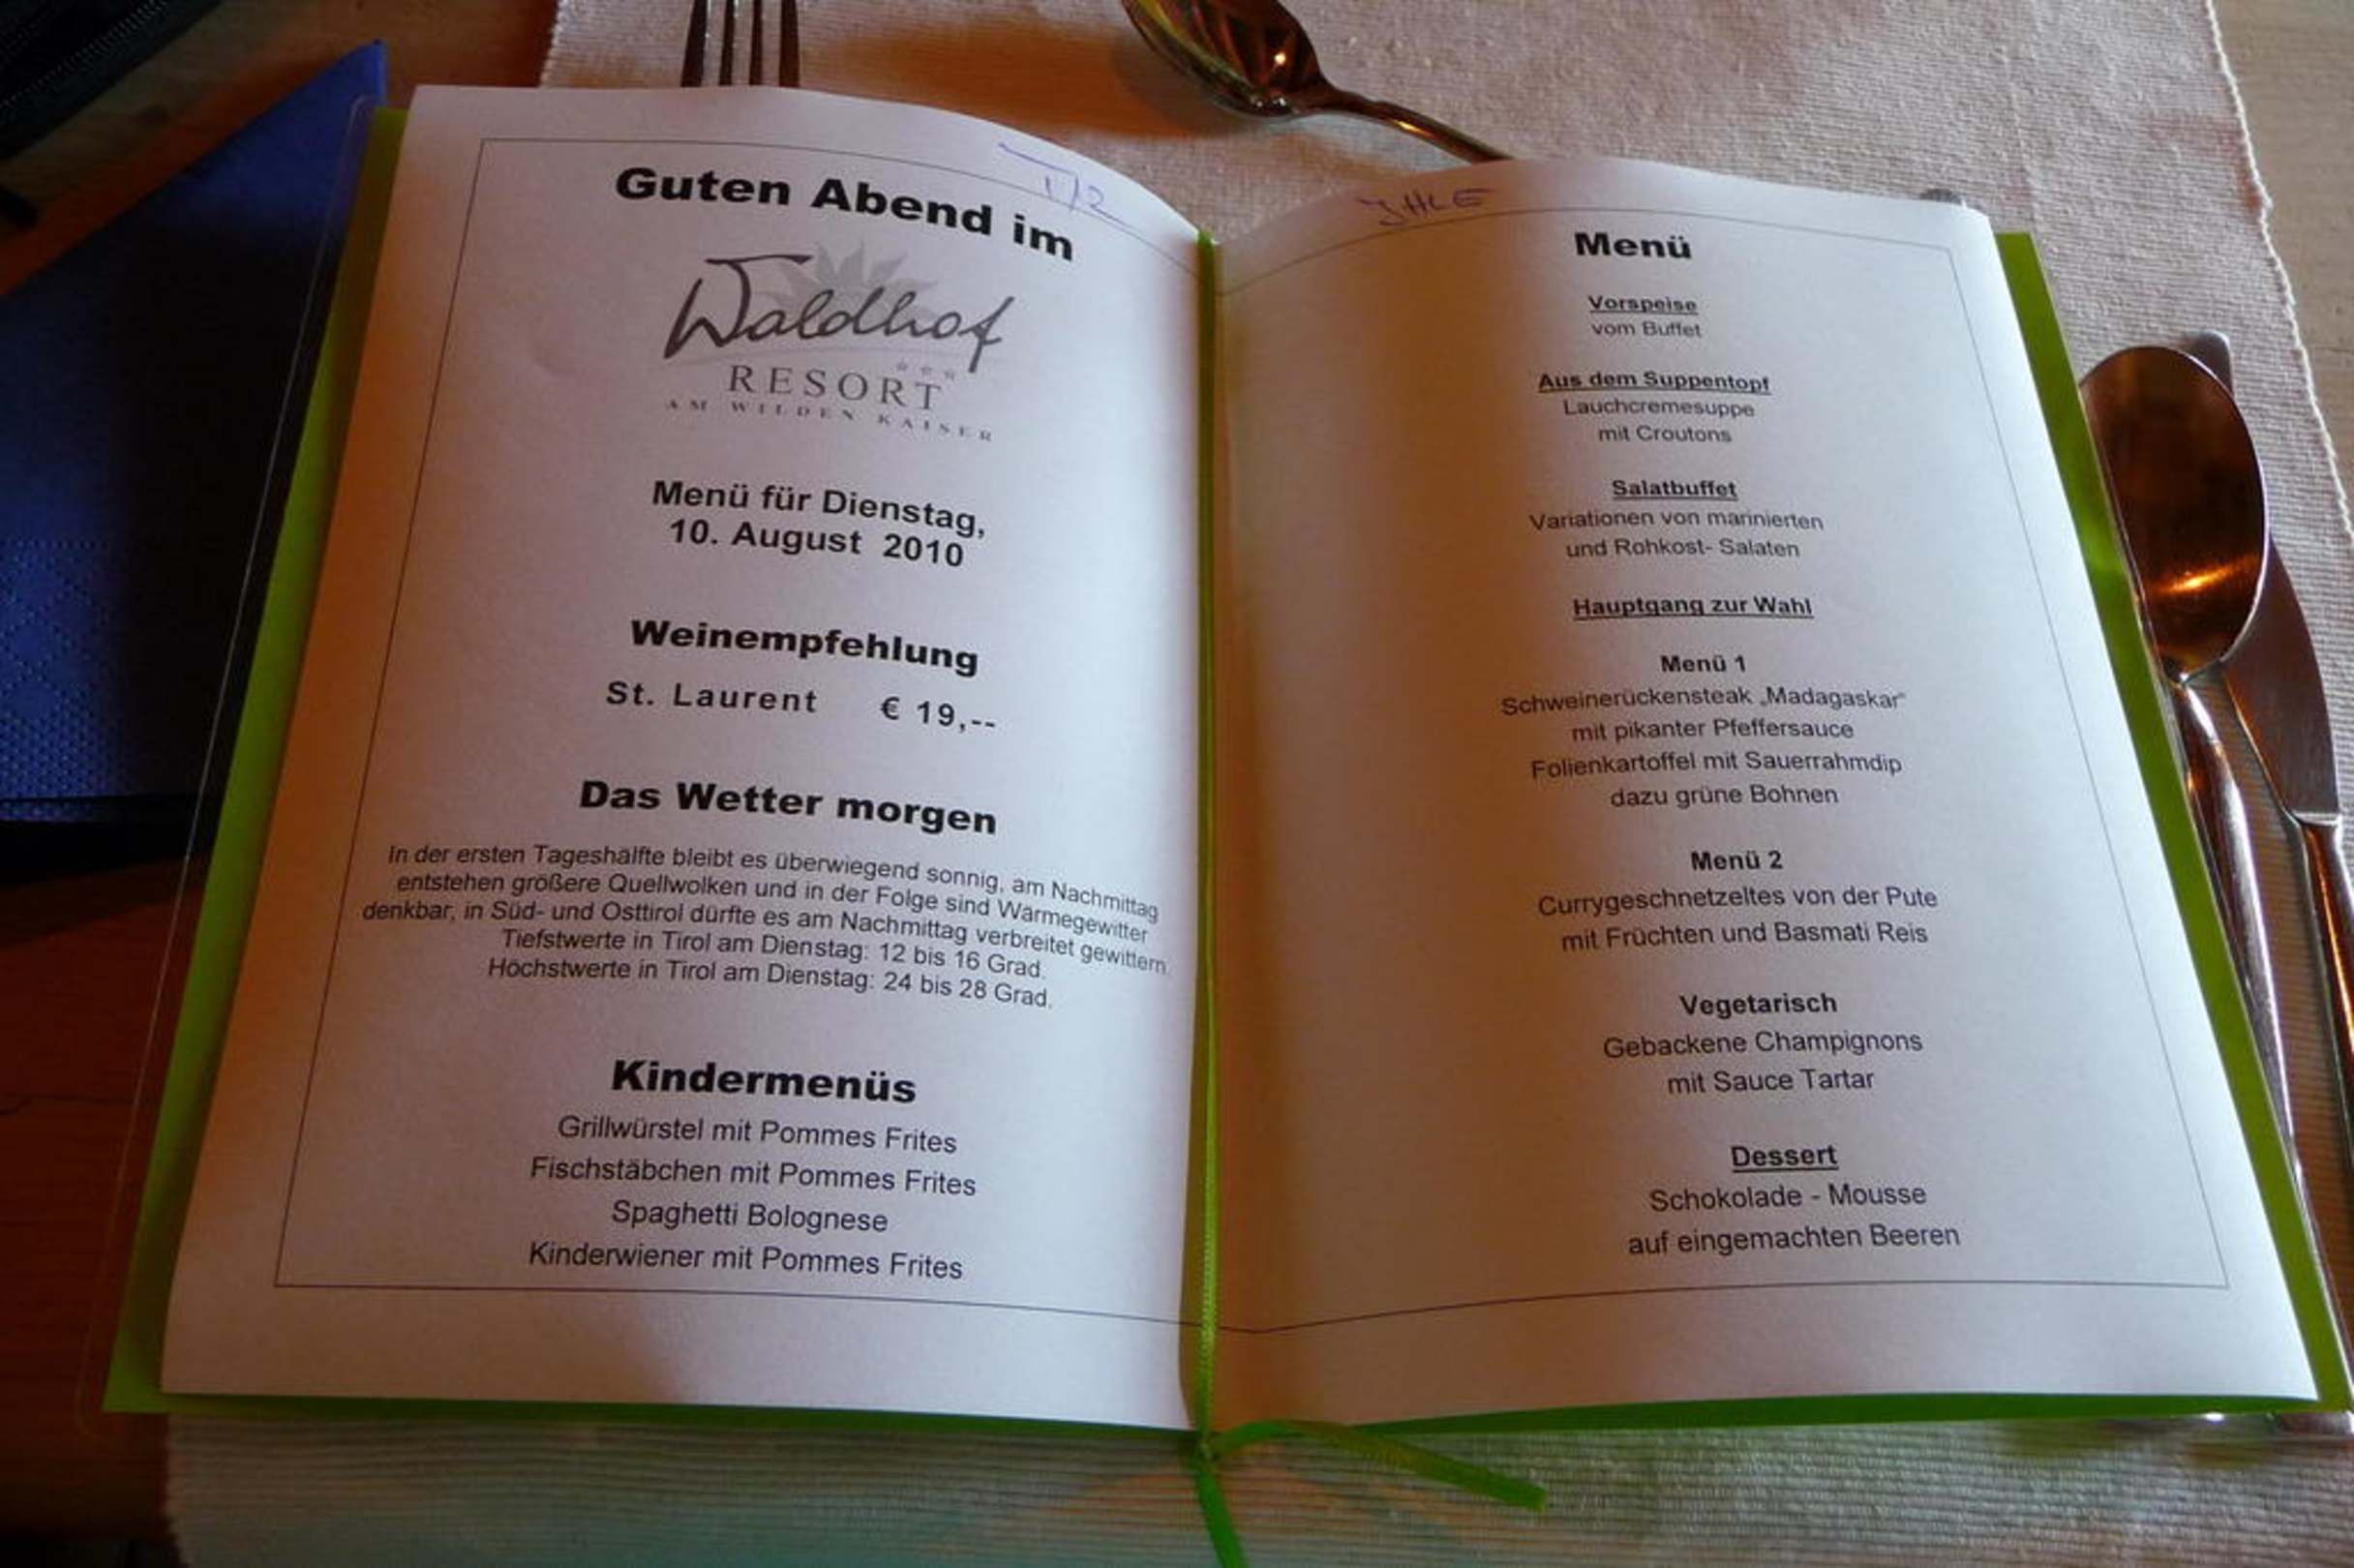 Guten Abend im
Waldhof
RESORT
AM WILDEN KAISER
Menü für Dienstag,
10. August 2010
Weinempfehlung
St. Laurent € 19,--
Das Wetter morgen
In der ersten Tageshälfte bleibt es überwiegend sonnig, am Nachmittag
entstehen größere Quellwolken und in der Folge sind Wärmegewitter
denkbar, in Süd- und Osttirol dürfte es am Nachmittag verbreitet gewittern.
Tiefstwerte in Tirol am Dienstag: 12 bis 16 Grad.
Höchstwerte in Tirol am Dienstag: 24 bis 28 Grad.
Kindermenüs
Grillwürstel mit Pommes Frites
Fischstäbchen mit Pommes Frites
Spaghetti Bolognese
Kinderwiener mit Pommes Frites
IHLE
Menü
Vorspeise
vom Buffet
Aus dem Suppentopf
Lauchcremesuppe
mit Croutons
Salatbuffet
Variationen von marinierten
und Rohkost- Salaten
Hauptgang zur Wahl
Menü 1
Schweinerückensteak „Madagaskar“
mit pikanter Pfeffersauce
Folienkartoffel mit Sauerrahmdip
dazu grüne Bohnen
Menü 2
Currygeschnetzeltes von der Pute
mit Früchten und Basmati Reis
Vegetarisch
Gebackene Champignons
mit Sauce Tartar
Dessert
Schokolade - Mousse
auf eingemachten Beeren